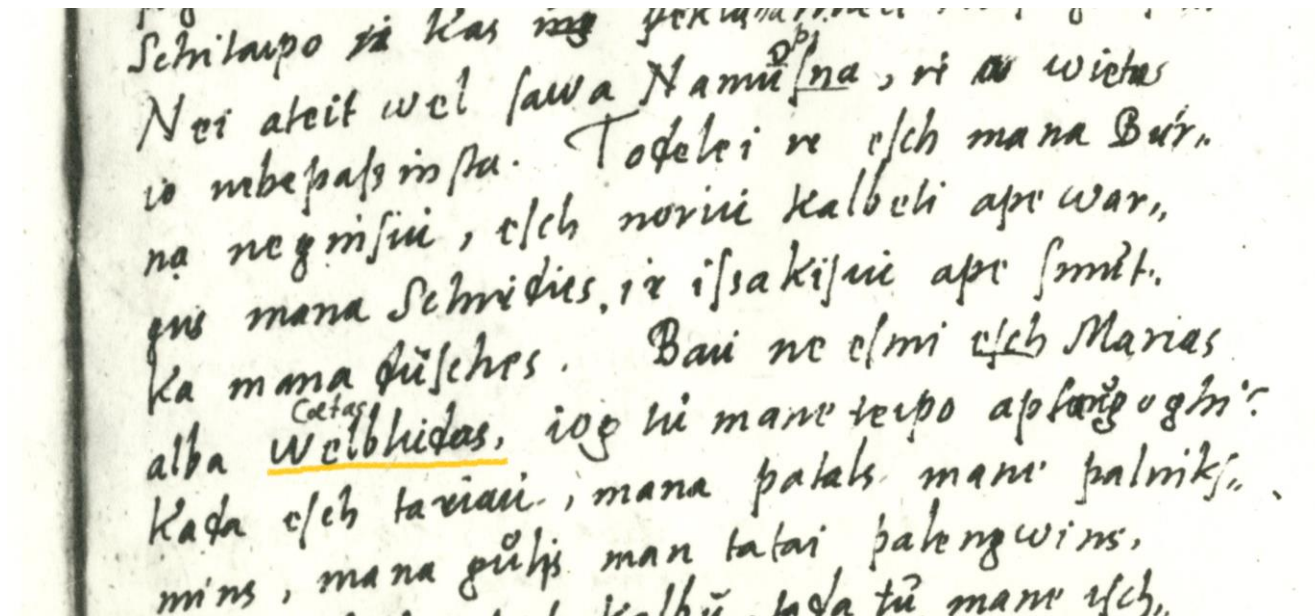 Schitaipo Kas
Nei ateit wel ſawa Namůſna, ir wietas
io nebepaſsinſta. Todelei ir eſch mana Bur„
ną neginſiu, eſch noriu kalbeti ape war„
gus mana Schirdies, ir iſsakiſiu ape ſmut.
ka mana důſches. Bau ne eſmi eſch Marias
Cætas
alba Welbhidas, iog tu mane teipo apſaugoghi?
Kada eſch tariau, mana patals mane palinkſ„
mins, mana gůlis man tatai palengwins,
Kalbu, tada tu mane iſch„